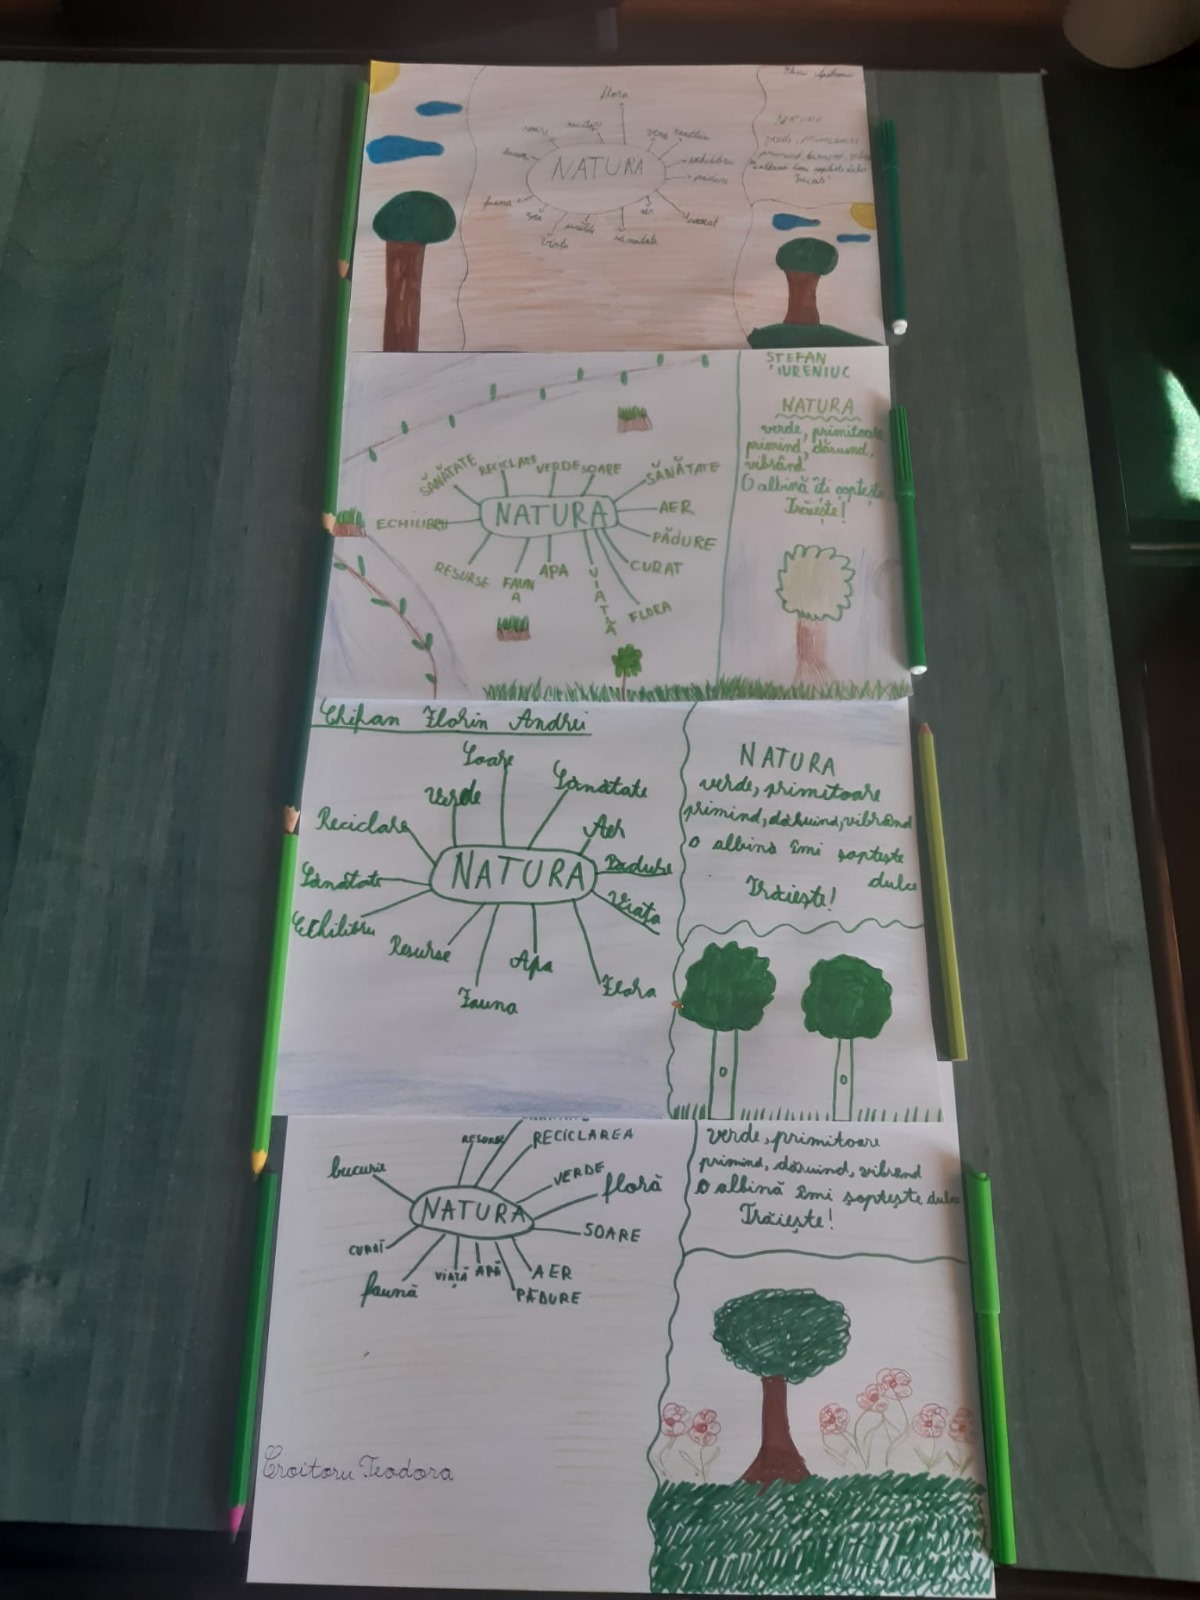 flora
NATURA
echilibru
pădure
fauna
sănătate
NATURA
ȘTEFAN
IURENIUC
NATURA
verde, primitoare
primind, dăruind,
vibrând
O albină îți șoptește
Trăiește!
SĂNĂTATE
RECICLARE
VERDE
SOARE
SĂNĂTATE
ECHILIBRU
NATURA
AER
PĂDURE
RESURSE
FAUNA
APA
VIAȚĂ
CURAT
FLORA
Chifan Florin Andrei
Soare
Verde
Sănătate
Reciclare
Aer
NATURA
Pădure
Sănătate
Viața
Echilibru
Resurse
Apa
Fauna
Flora
NATURA
verde, primitoare
primind, dăruind, vibrând
O albină îmi șoptește
dulce
Trăiește!
RESURSE
RECICLAREA
bucurie
VERDE
floră
NATURA
SOARE
CURAT
faună
VIAȚĂ
APĂ
AER
PĂDURE
verde, primitoare
primind, dăruind, vibrând
O albină îmi șoptește dulce
Trăiește!
Croitoru Teodora